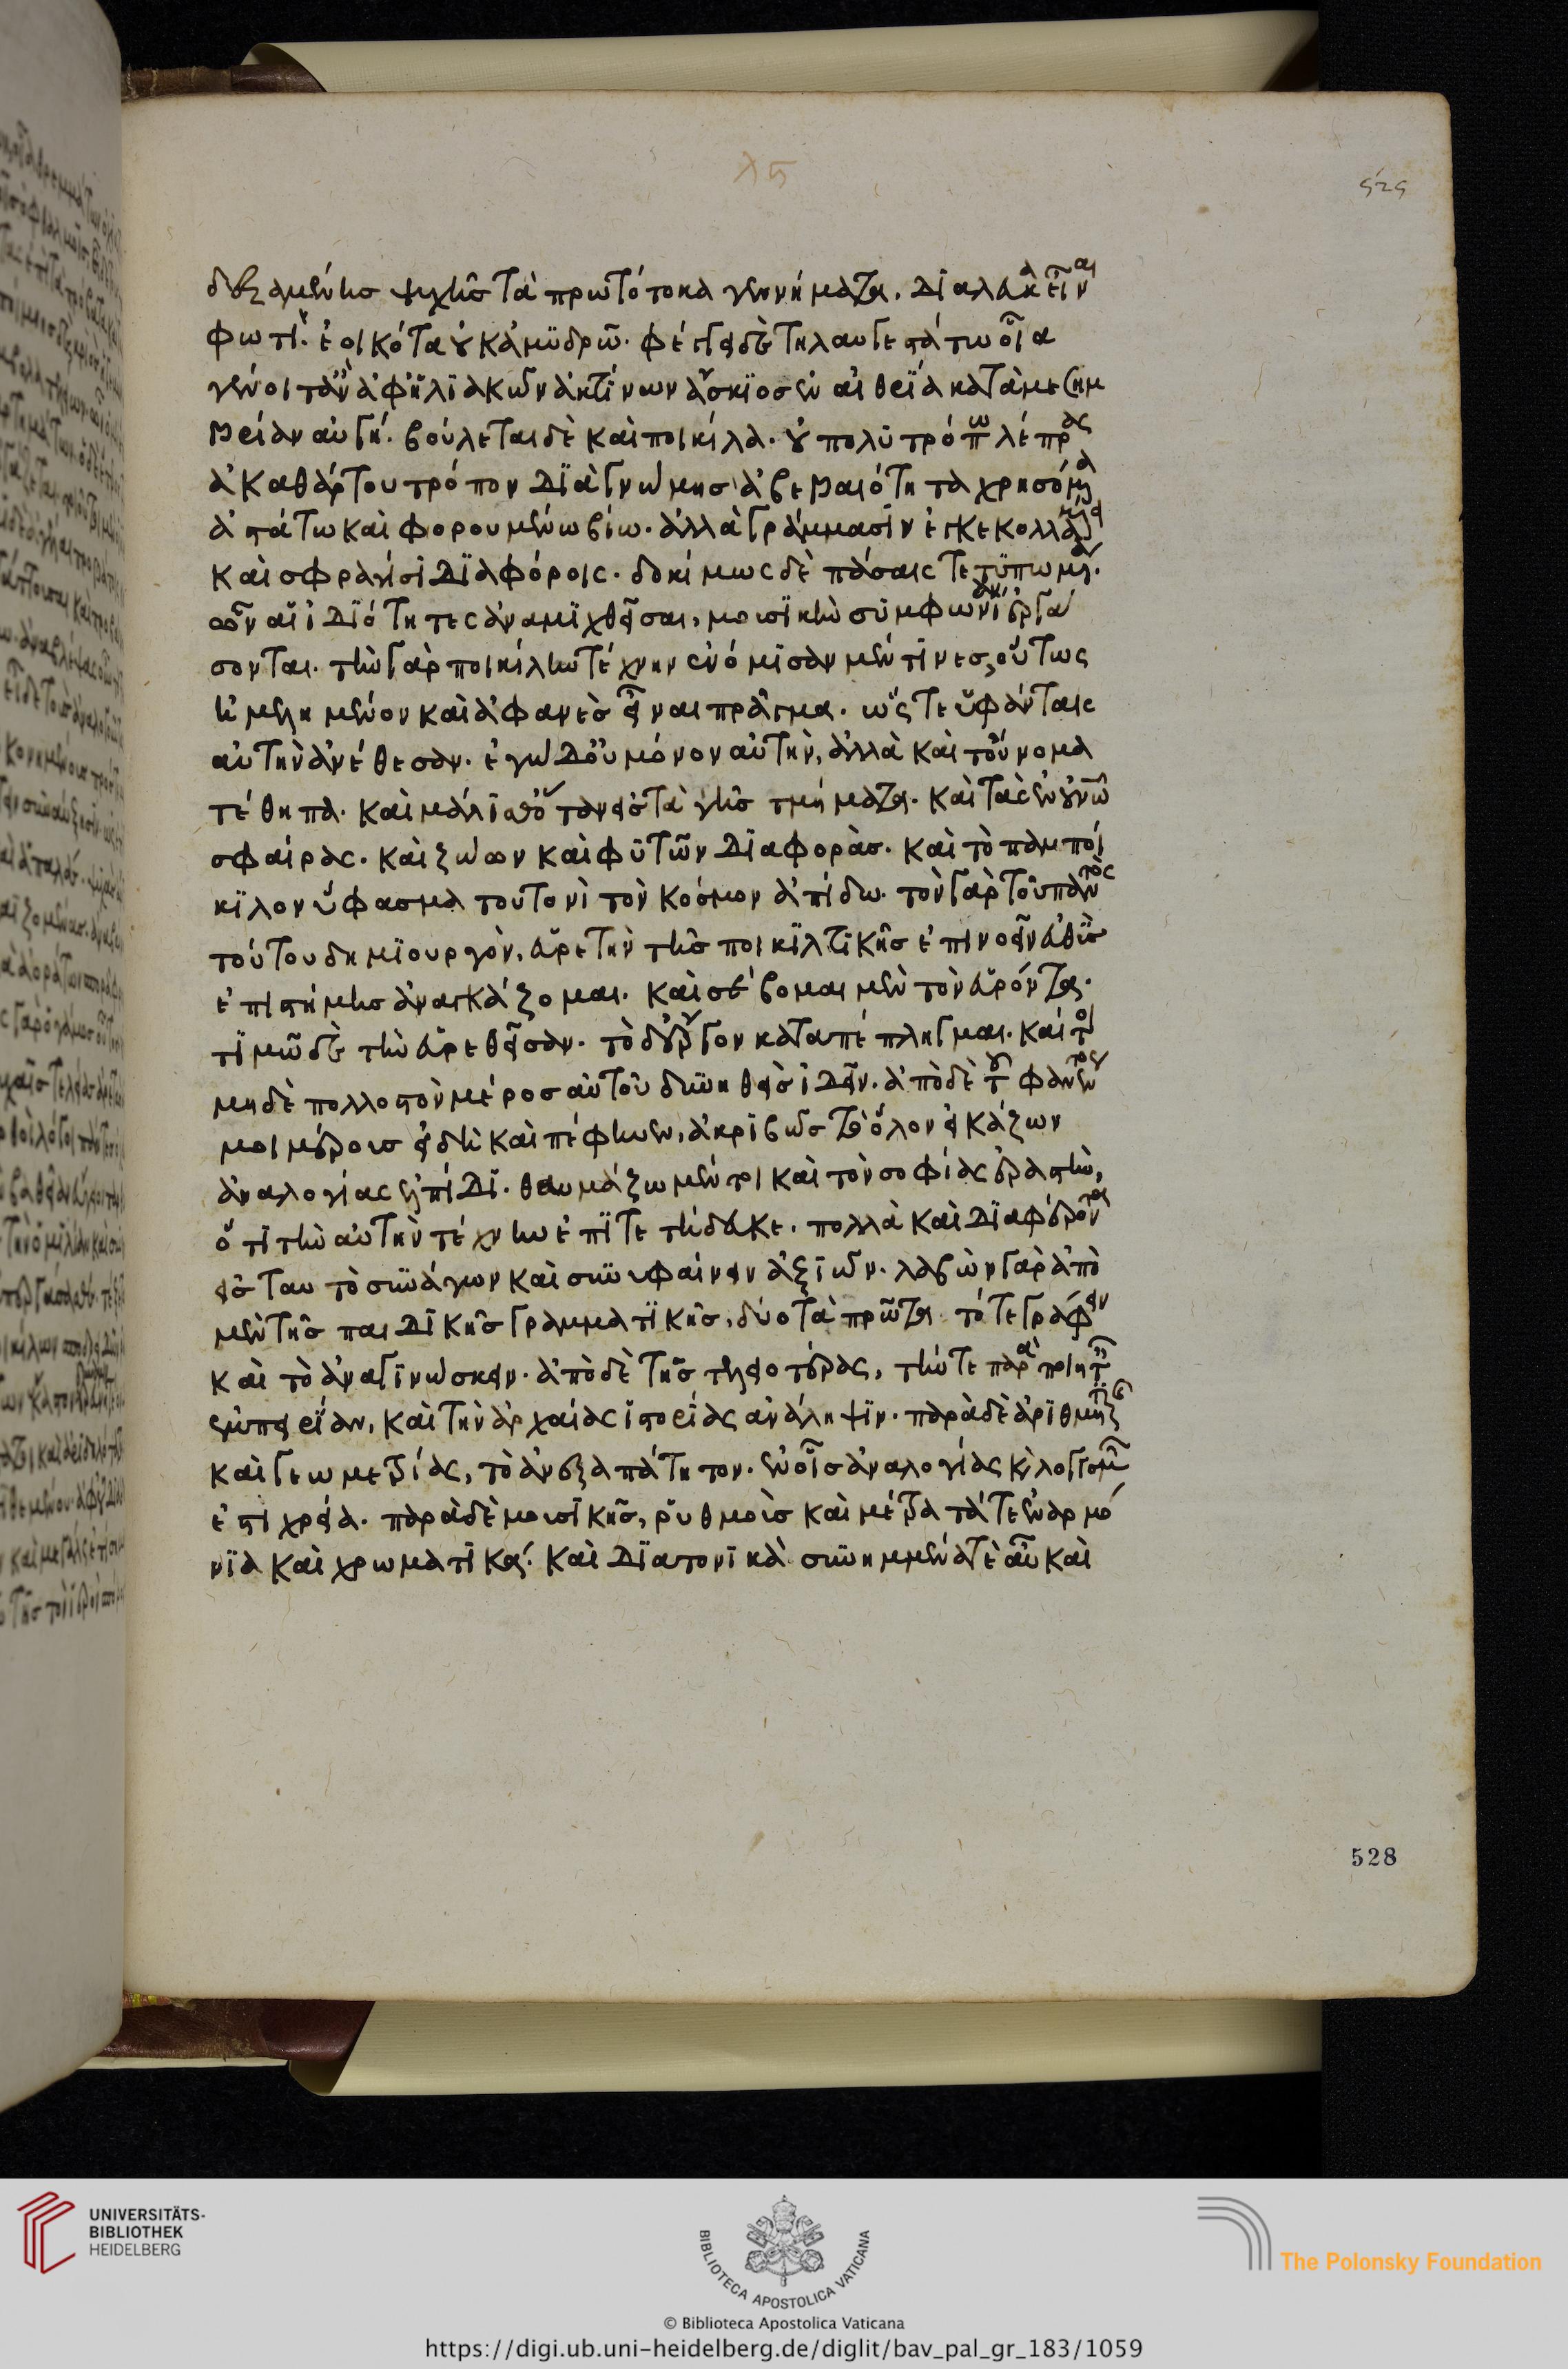 δεξαμένης ψυχῆς τὰ πρωτότοκα γεννήματα. διάλευκα
φωτὶ ἐοικότα οὐκ ἀμυδρῶ. φέγγει δὲ τηλαυγεστάτω οἷα
γένοιτ' ἂν ἀφ' ἡλιακῶν ἀκτίνων ἄσκιος ἐν αἰθρία κατὰ μεσημ
βρίαν αὐγή. βούλεται δὲ καὶ ποικίλα. οὐ πολυτρόπω λέπρας
ἀκαθάρτου τρόπον διὰ γνώμης ἀβεβαιότητα χρησόμενα
ἀστάτω καὶ φορουμένω βίω. ἀλλὰ γράμμασιν ἐγκεκολλαμμένα
καὶ σφραγίσι διαφόροις. δοκίμως δὲ πάσαις τετυπωμένα.
ὧν αἱ ἰδιότητες ἀναμιχθεῖσαι, μουσικὴν συμφωνίαν ἐργά
σονται. τὴν γὰρ ποικίλην τέχνην ἐνόμισαν μέν τινες, οὕτως
ἠμελημένον καὶ ἀφανὲς εἶναι πρᾶγμα. ὥστε ὑφάνταις
αὐτὴν ἀνέθεσαν. ἐγὼ δ' οὐ μόνον αὐτὴν, ἀλλὰ καὶ τοὔνομα
τέθηπα. καὶ μάλισθ' ὅταν εἰς τὰ γῆς τμήματα. καὶ τὰς ἐν οὐνῶ
σφαίρας. καὶ ζώων καὶ φυτῶν διαφορὰς. καὶ τὸ παμποί
κιλον ὕφασμα τουτονὶ τὸν κόσμον ἀπίδω. τὸν γὰρ τοῦ παντὸς
τούτου δημιουργὸν, εὑρετὴν τῆς ποικιλτικῆς ἐπινοεῖν εὐθὺς
ἐπιστήμης ἀναγκάζομαι. καὶ σέβομαι μὲν τὸν εὑρόντα.
τιμῶ δὲ τὴν εὑρεθεῖσαν. τὸ δ' ἔργον καταπέπληγμαι. καίτοι
μηδὲ πολλοστὸν μέρος αὐτοῦ δυνηθεὶς ἰδεῖν. ἀπὸ δὲ τοῦ φανέντος
μοι μέρους εἰ δὴ καὶ πέφηνεν, ἀκριβῶς τὸ ὅλον εἰκάζων
ἀναλογίας ἐλπίδι. θαυμάζω μέντοι καὶ τὸν σοφίας ἐραστὴν,
ὅτι τὴν αὐτὴν τέχνην ἐπιτετήδευκε. πολλὰ καὶ διαφέροντα
εἰς ταυτὸ συνάγων καὶ συνυφαίνειν ἀξιῶν. λαβὼν γὰρ ἀπὸ
μὲν τῆς παιδικῆς γραμματικῆς, δύο τὰ πρῶτα. τό τε γράφειν
καὶ τὸ ἀναγινώσκειν. ἀπὸ δὲ τῆς τελειοτέρας, τήν τε παρὰ ποιηταῖς
ἐμπειρίαν, καὶ τὴν ἀρχαίας ἱστορίας ἀνάληψιν. παρὰ δὲ ἀριθμητικῆς
καὶ γεωμετρίας, τὸ ἀνεξαπάτητον. ἐν οἷς ἀναλογίας καὶ λογισμῶν
ἐστι χρεία. παρὰ δὲ μουσικῆς, ῥυθμοὺς καὶ μέτρα τά τε ἐναρμό
νια καὶ χρωματικά. καὶ διατονικὰ συνημμένα τὲ αὖ καὶ
528
UNIVERSITÄTS-
BIBLIOTHEK
HEIDELBERG
BIBLIOTECA APOSTOLICA VATICANA
The Polonsky Foundation
© Biblioteca Apostolica Vaticana
https://digi.ub.uni-heidelberg.de/diglit/bav_pal_gr_183/1059